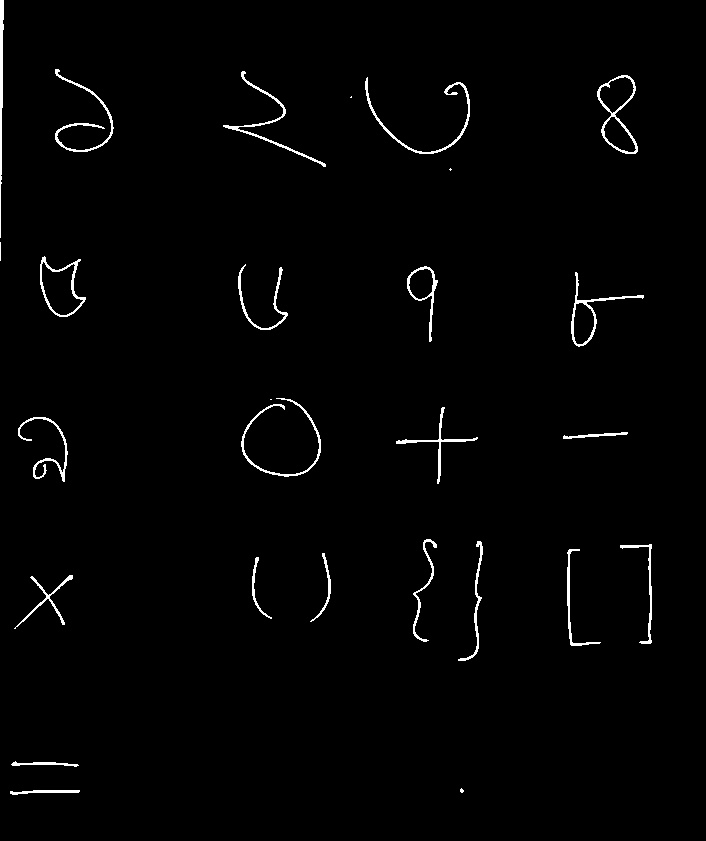 ১ ২ ৩ ৪
৫ ৬ ৭ ৮
৯ ০ + -
× ( ) { } [ ]
=